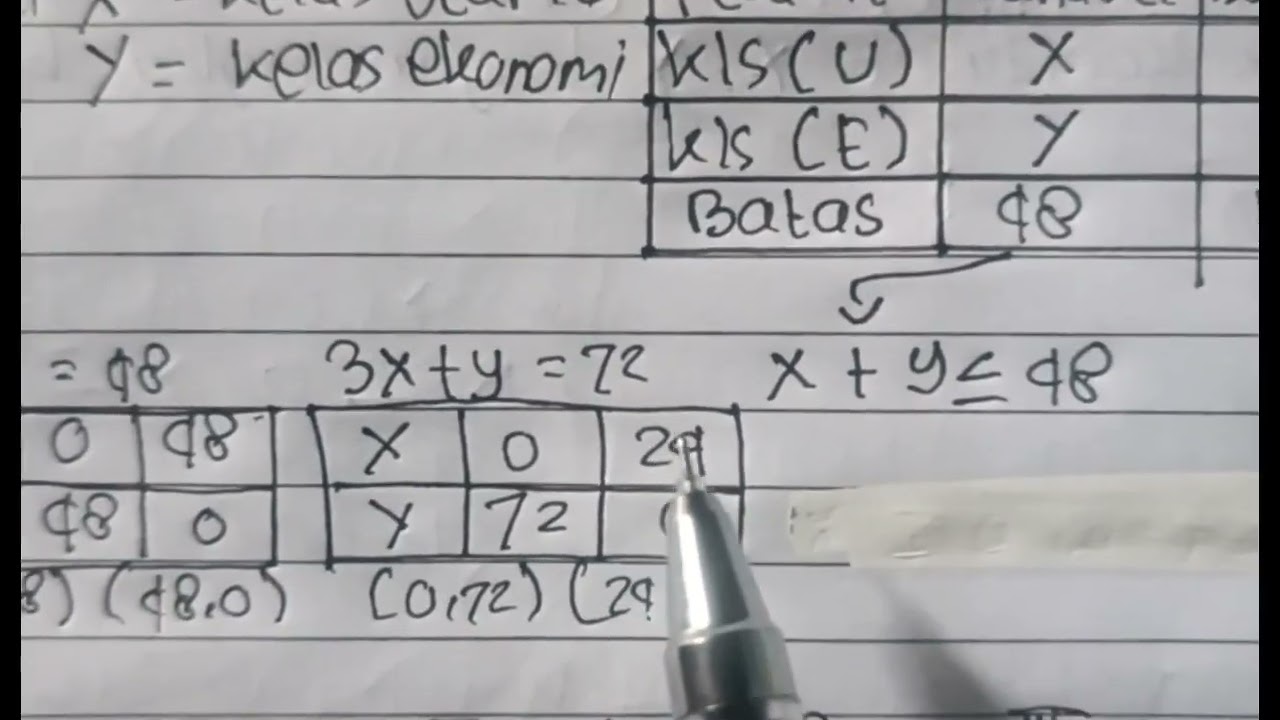 y = kelas ekonomi
kls (U) X
kls (E) y
Batas 48
= 48 3x + y = 72 x + y ≤ 48
0 48 X 0 24
48 0 y 72
8) (48,0) (0,72) (24